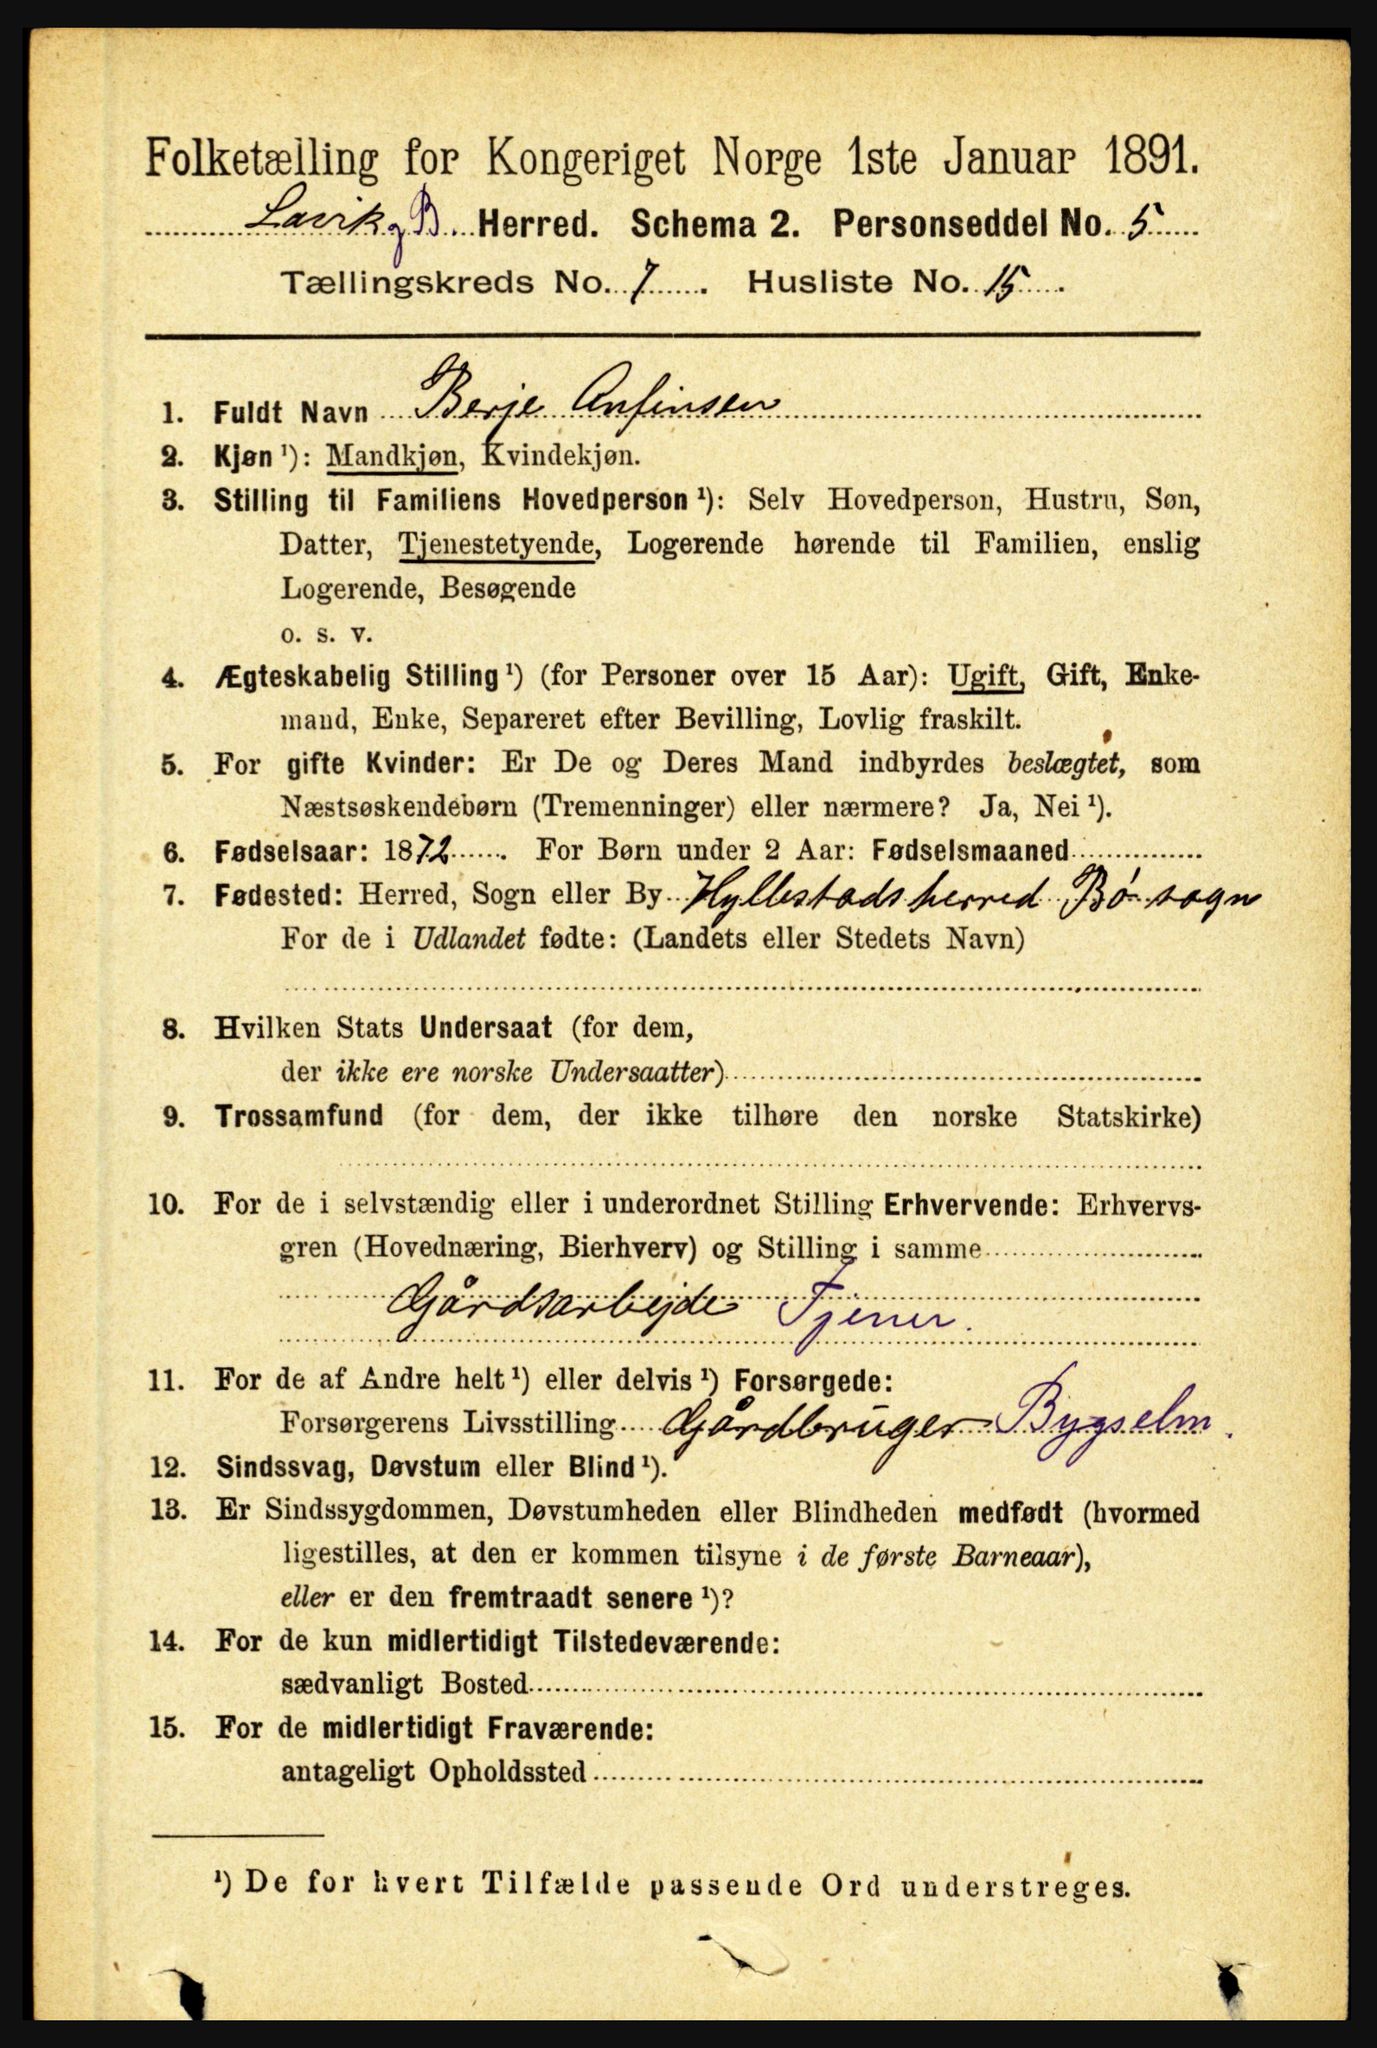 Folketælling for Kongeriget Norge 1ste Januar 1891.
Lavik og B. Herred. Schema 2. Personseddel No. 5
Tællingskreds No. 7. Husliste No. 15.
1. Fuldt Navn Berje Anfinsen
2. Kjøn ¹): Mandkjøn, Kvindekjøn.
3. Stilling til Familiens Hovedperson ¹): Selv Hovedperson, Hustru, Søn,
Datter, Tjenestetyende, Logerende hørende til Familien, enslig
Logerende, Besøgende
o. s. v.
4. Ægteskabelig Stilling ¹) (for Personer over 15 Aar): Ugift, Gift, Enke-
mand, Enke, Separeret efter Bevilling, Lovlig fraskilt.
5. For gifte Kvinder: Er De og Deres Mand indbyrdes beslægtet, som
Næstsøskendebørn (Tremenninger) eller nærmere? Ja, Nei ¹).
6. Fødselsaar: 1872. For Børn under 2 Aar: Fødselsmaaned
7. Fødested: Herred, Sogn eller By Hyllestadsherred Bø sogn
For de i Udlandet fødte: (Landets eller Stedets Navn)
8. Hvilken Stats Undersaat (for dem,
der ikke ere norske Undersaatter)
9. Trossamfund (for dem, der ikke tilhøre den norske Statskirke)
10. For de i selvstændig eller i underordnet Stilling Erhvervende: Erhvervs-
gren (Hovednæring, Bierhverv) og Stilling i samme
Gårdsarbejde Tjener.
11. For de af Andre helt ¹) eller delvis ¹) Forsørgede:
Forsørgerens Livsstilling Gårdbruger Bygselm.
12. Sindssvag, Døvstum eller Blind ¹).
13. Er Sindssygdommen, Døvstumheden eller Blindheden medfødt (hvormed
ligestilles, at den er kommen tilsyne i de første Barneaar),
eller er den fremtraadt senere ¹)?
14. For de kun midlertidigt Tilstedeværende:
sædvanligt Bosted
15. For de midlertidigt Fraværende:
antageligt Opholdssted
¹) De for hvert Tilfælde passende Ord understreges.